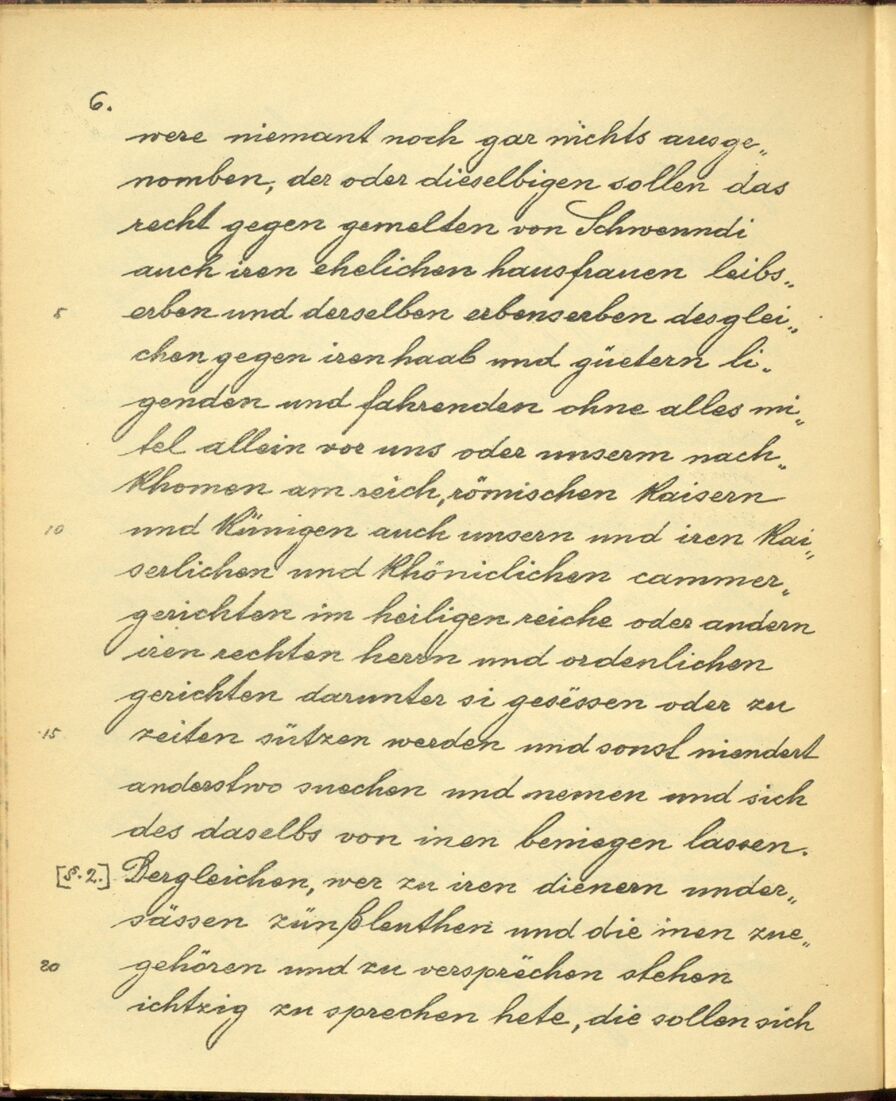 6.
were niemant noch gar nichts ausge„
nomben, der oder dieselbigen sollen das
recht gegen gemelten von Schwenndi
auch iren ehelichen hausfrauen leibs„
5 erben und derselben erbenserben desglei„
chen gegen iren haab und güetern li„
genden und fahrenden ohne alles mi„
tel allein vor uns oder unserm nach„
khomen am reich, römischen kaisern
10 und künigen auch unsern und iren kai„
serlichen und khöniclichen cammer„
gerichten im heiligen reiche oder andern
iren rechten herrn und ordenlichen
gerichten darunter si gesëssen oder zu
15 zeiten sützen werden und sonst niendert
anderstwo suechen und nemen und sich
des daselbs von inen beniegen lassen.
[§.2.] Dergleichen, wer zu iren dienern under„
sässen zünßleuthen und die inen zue„
20 gehören und zu versprëchen stehen
ichtzig zu sprechen hete, die sollen sich